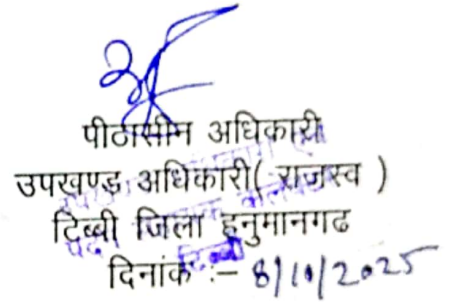 पीठासीन अधिकारी
उपखण्ड अधिकारी( राजस्व )
टिब्बी जिला हनुमानगढ
दिनांक :– 8/10/2025